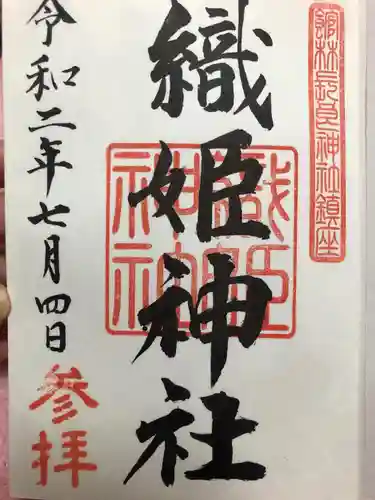 館林長良神社鎮座
織姫神社
織姫神社
令和二年七月四日
参拝